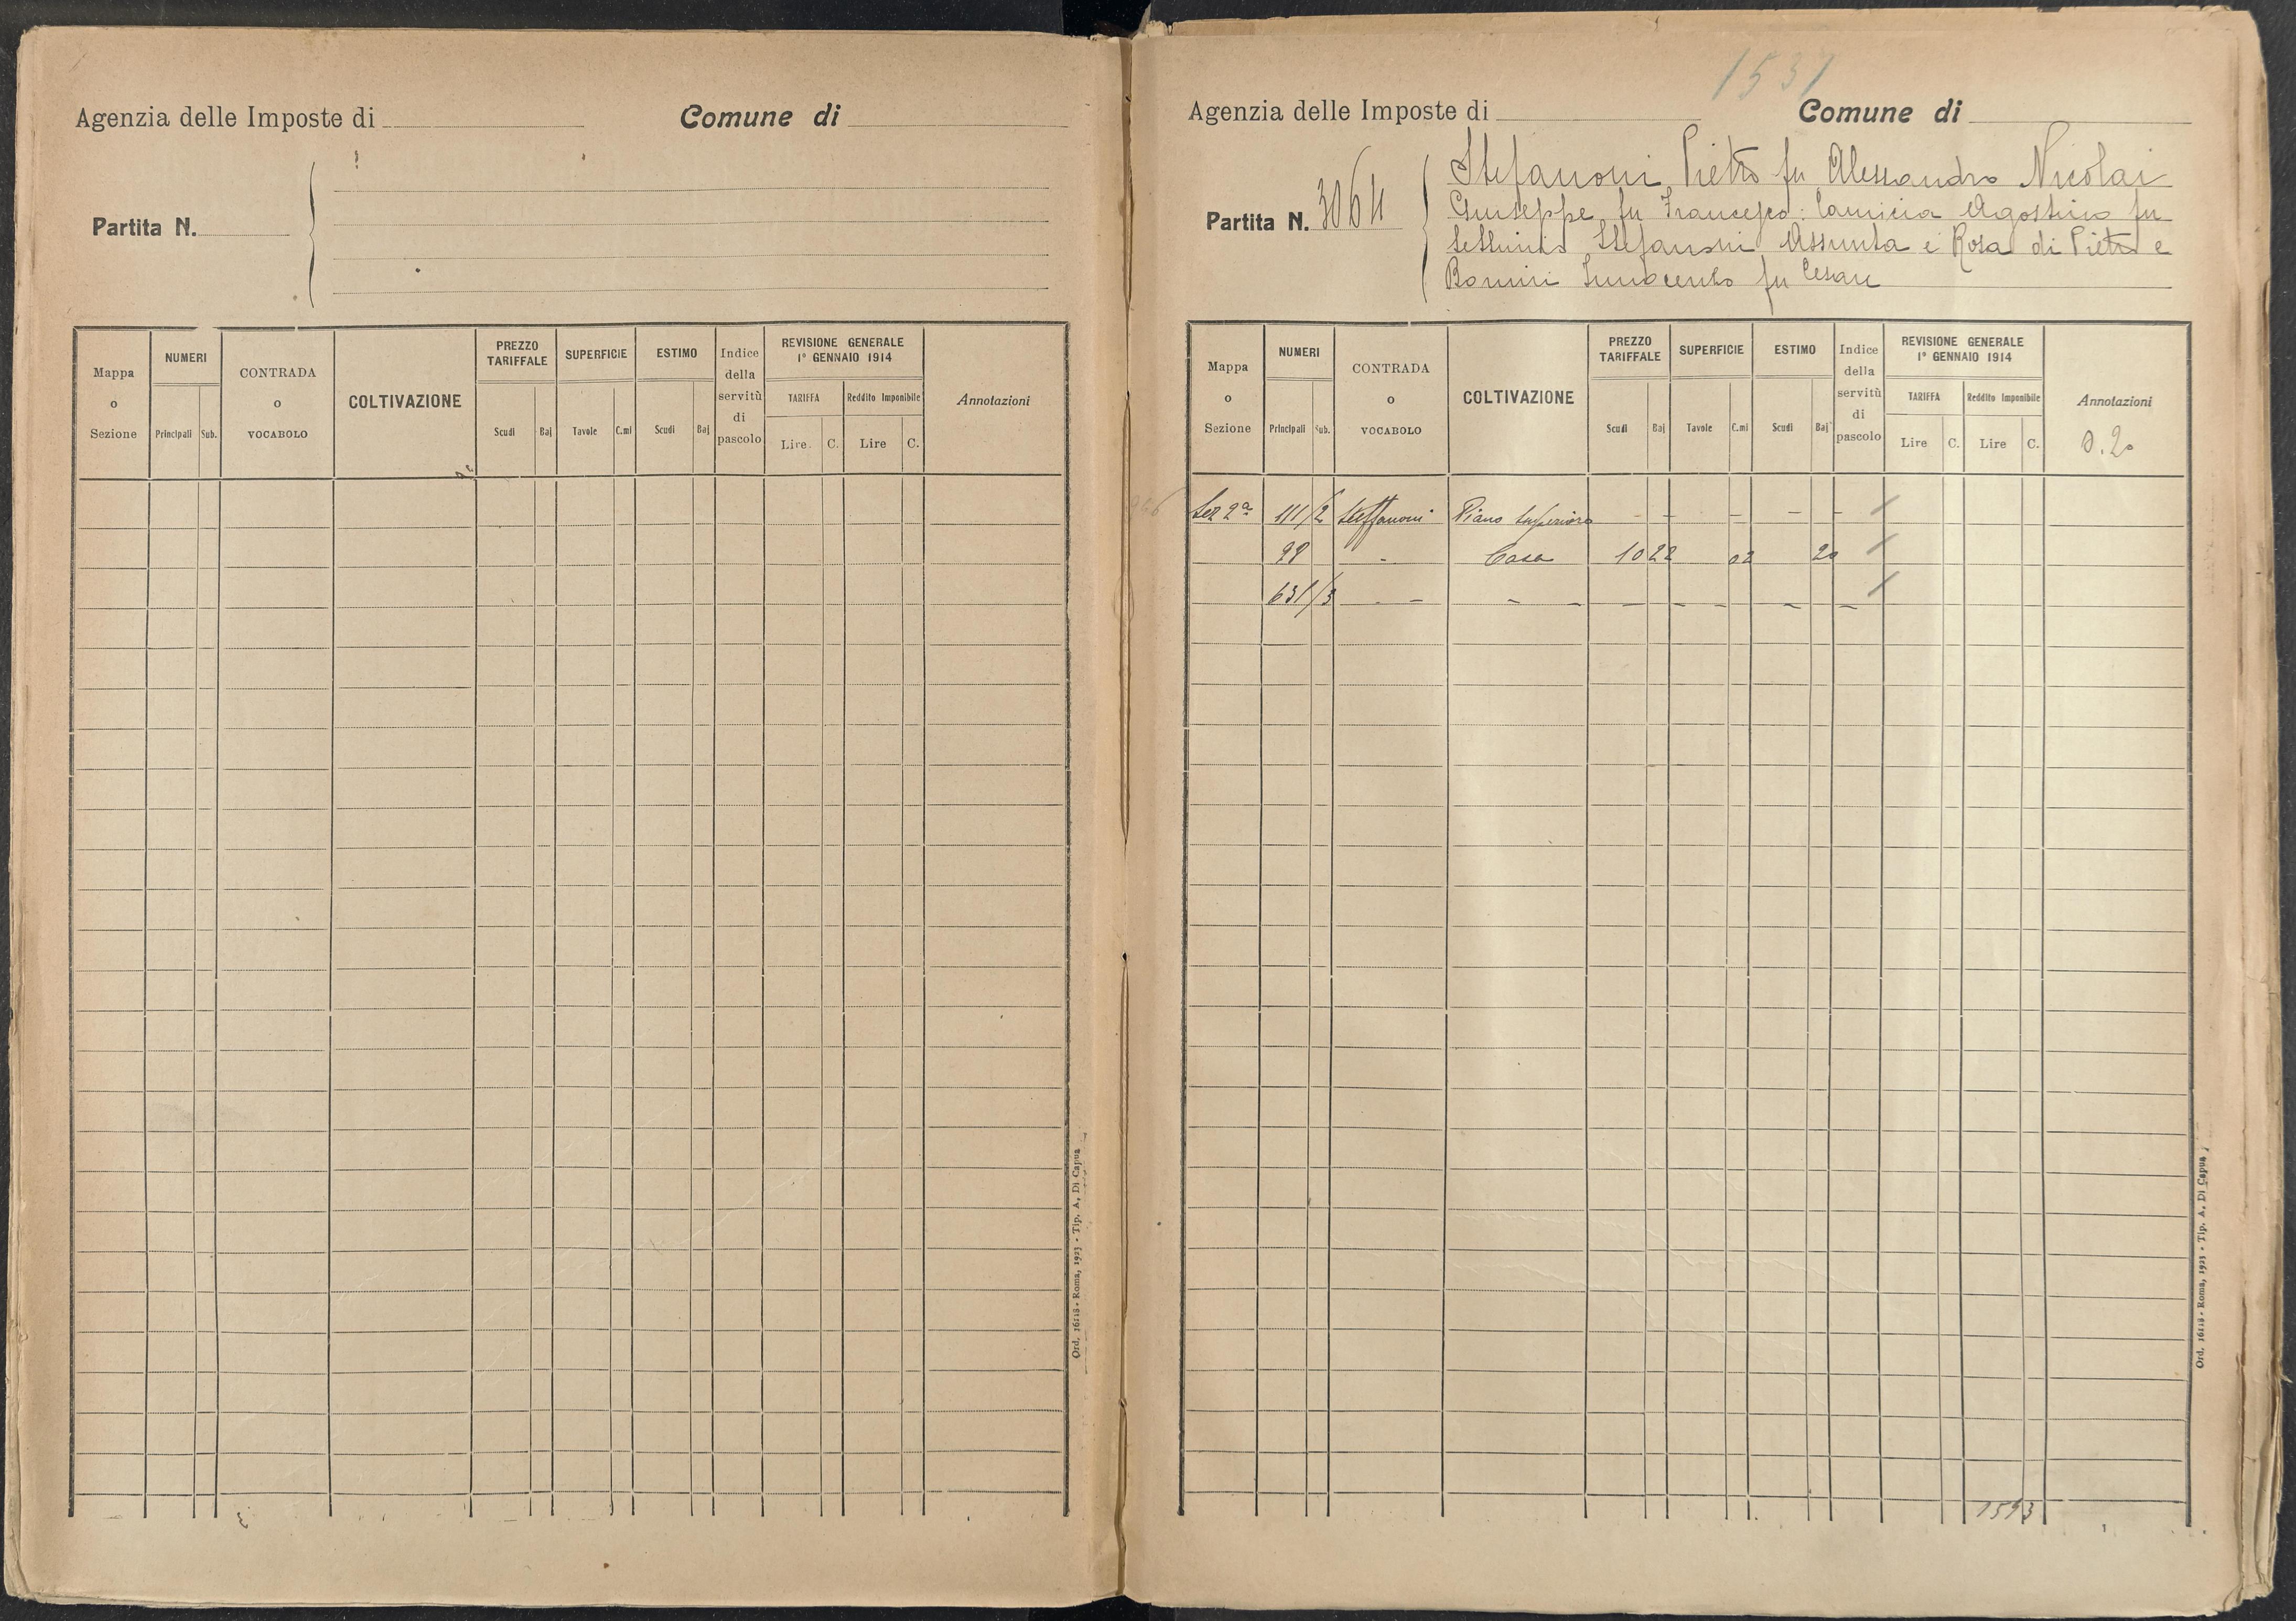 Agenzia delle Imposte di Comune di
Partita N.
Mappa o Sezione
NUMERI
Principali Sub.
CONTRADA o VOCABOLO
COLTIVAZIONE
PREZZO TARIFFALE
Scudi Baj
SUPERFICIE
Tavole C.mi
ESTIMO
Scudi Baj
Indice della servitù di pascolo
REVISIONE GENERALE
1° GENNAIO 1914
TARIFFA Reddito Imponibile
Lire. C. Lire C.
Annotazioni
Ord. 16118 - Roma, 1923 - Tip. A. Di Capua
1531
Agenzia delle Imposte di Comune di
Partita N. 3064
Stefanoni Pietro fu Alessandro Nicolai
Giuseppe fu Francesco: Camicia Agostino fu
Settimio Stefanoni Assunta e Rosa di Pietro e
Bonini Innocento fu Cesare
Mappa o Sezione
NUMERI
Principali Sub.
CONTRADA o VOCABOLO
COLTIVAZIONE
PREZZO TARIFFALE
Scudi Baj
SUPERFICIE
Tavole C.mi
ESTIMO
Scudi Baj
Indice della servitù di pascolo
REVISIONE GENERALE
1° GENNAIO 1914
TARIFFA Reddito Imponibile
Lire C. Lire C.
Annotazioni
0.20
Sez 2ª 111/2 Steffanoni Piano Superiore - - - - - /
99 - Casa 10 22 02 20 /
631/3 - - - - - - - - - - /
1593
Ord. 16118 - Roma, 1923 - Tip. A. Di Capua